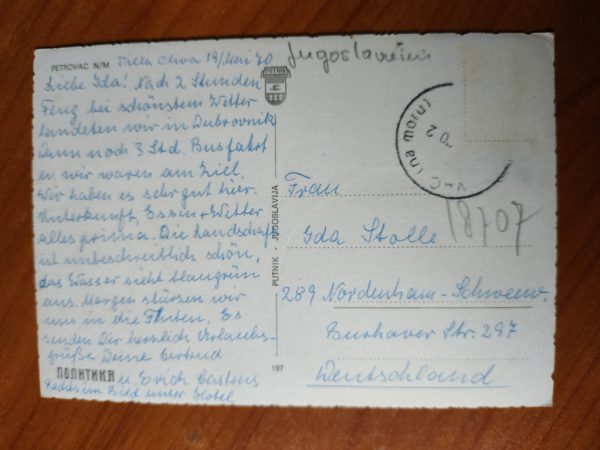 PETROVAC N/M Villa Oliva 19/Mai 70
Liebe Ida! Nach 2 Stunden
Flug bei schönstem Wetter
landeten wir in Dubrovnik
dann noch 3 Std. Busfahrt
u. wir waren am Ziel.
Wir haben es sehr gut hier.
Unterkunft, Essen + Wetter
alles prima. Die Landschaft
ist unbeschreiblich schön,
das Wasser sieht blaugrün
aus. Morgen stürzen wir
uns in die Fluten. Es
senden Dir herzlich Urlaubs-
grüße Deine Gertrud
ПОЛИТИКА u. Erich Castens
Rechts im Bild unser Hotel
Jugoslawien
PUTNIK
PUTNIK - JUGOSLAVIJA
197
(na moru)
Frau
Ida Stolle
18707
289 Nordenham-Schweew.
Burhaver Str. 297
Deutschland